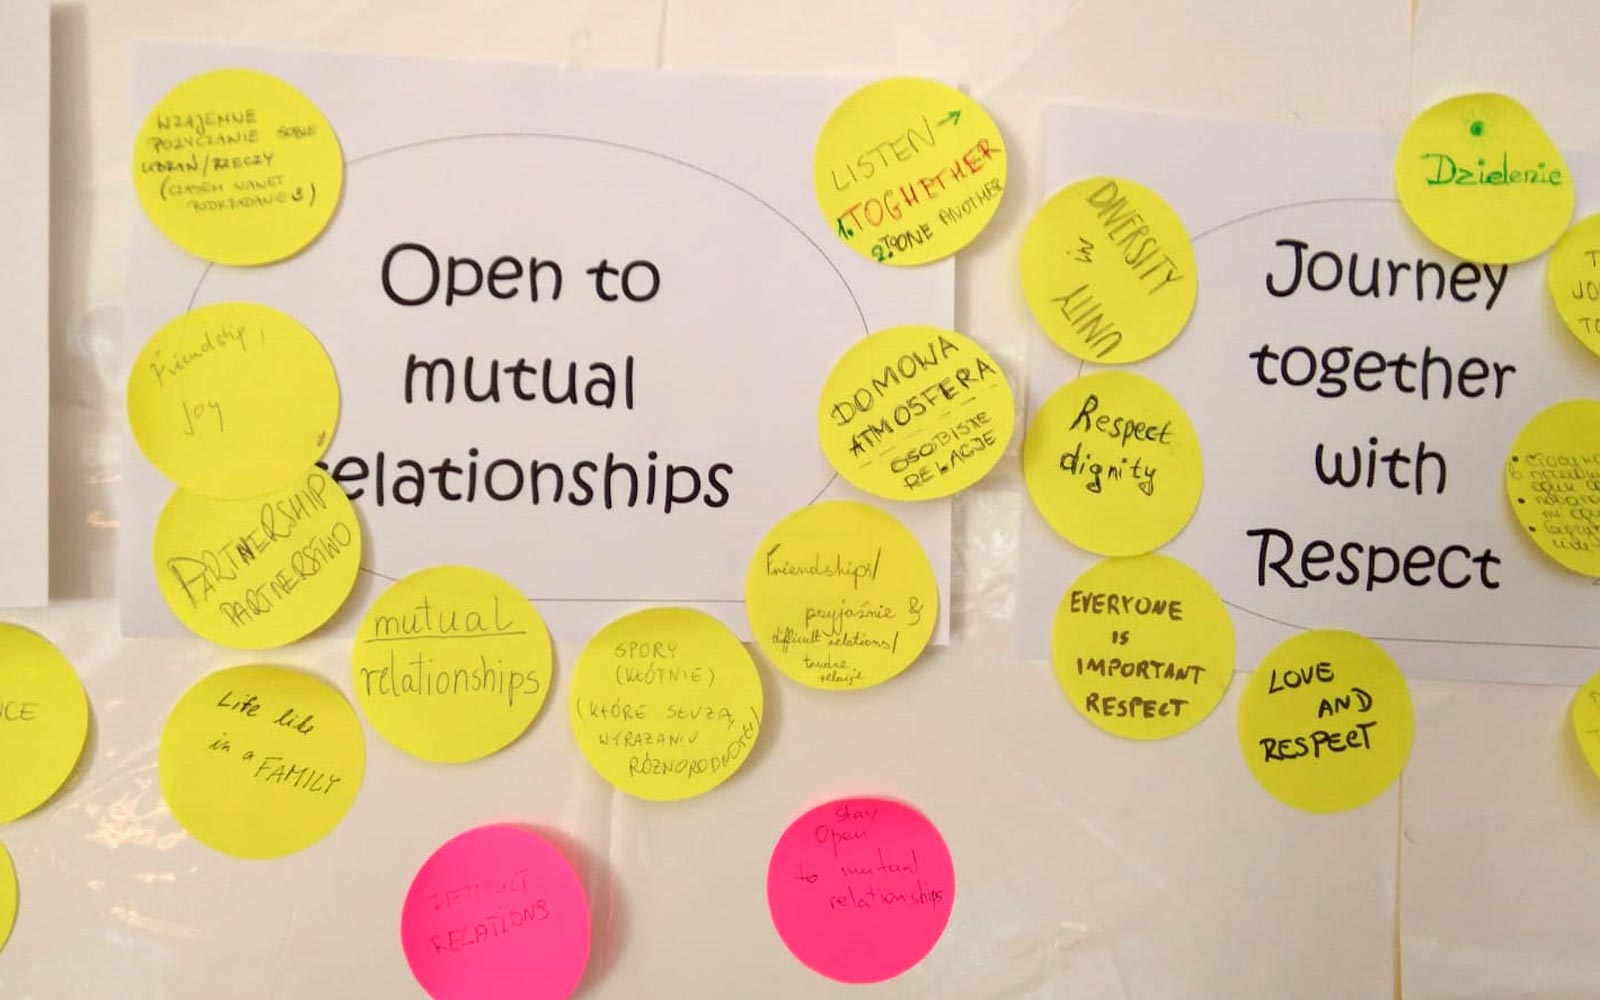 WZAJEMNE
POŻYCZANIE SOBIE
UBRAŃ/RZECZY
(CZASEM NAWET
PODKRADANIE)
Friendship,
Joy
PARTNERSHIP
PARTNERSTWO
Life like
in a FAMILY
mutual
relationships
Open to
mutual
relationships
LISTEN →
1. TOGHETHER
2. TO ONE ANOTHER
DOMOWA
ATMOSFERA
OSOBISTE
RELACJE
Friendships/
przyjaźnie &
difficult relations/
trudne
relacje
SPORY
(KŁÓTNIE)
(KTÓRE SŁUŻĄ
WYRAŻANIU
RÓŻNORODNOŚCI)
DIFFICULT
RELATIONS
Stay
Open
to mutual
relationships
DIVERSITY
in
UNITY
Respect
dignity
EVERYONE
IS
IMPORTANT
RESPECT
LOVE
AND
RESPECT
Journey
together
with
Respect
Dzielenie